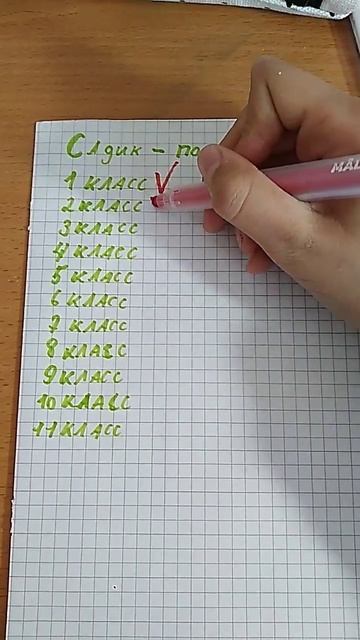 Слдик - по
1 КЛАСС V
2 КЛАСС
3 КЛАСС
4 КЛАСС
5 КЛАСС
6 КЛАСС
7 КЛАСС
8 КЛАСС
9 КЛАСС
10 КЛАСС
11 КЛАСС